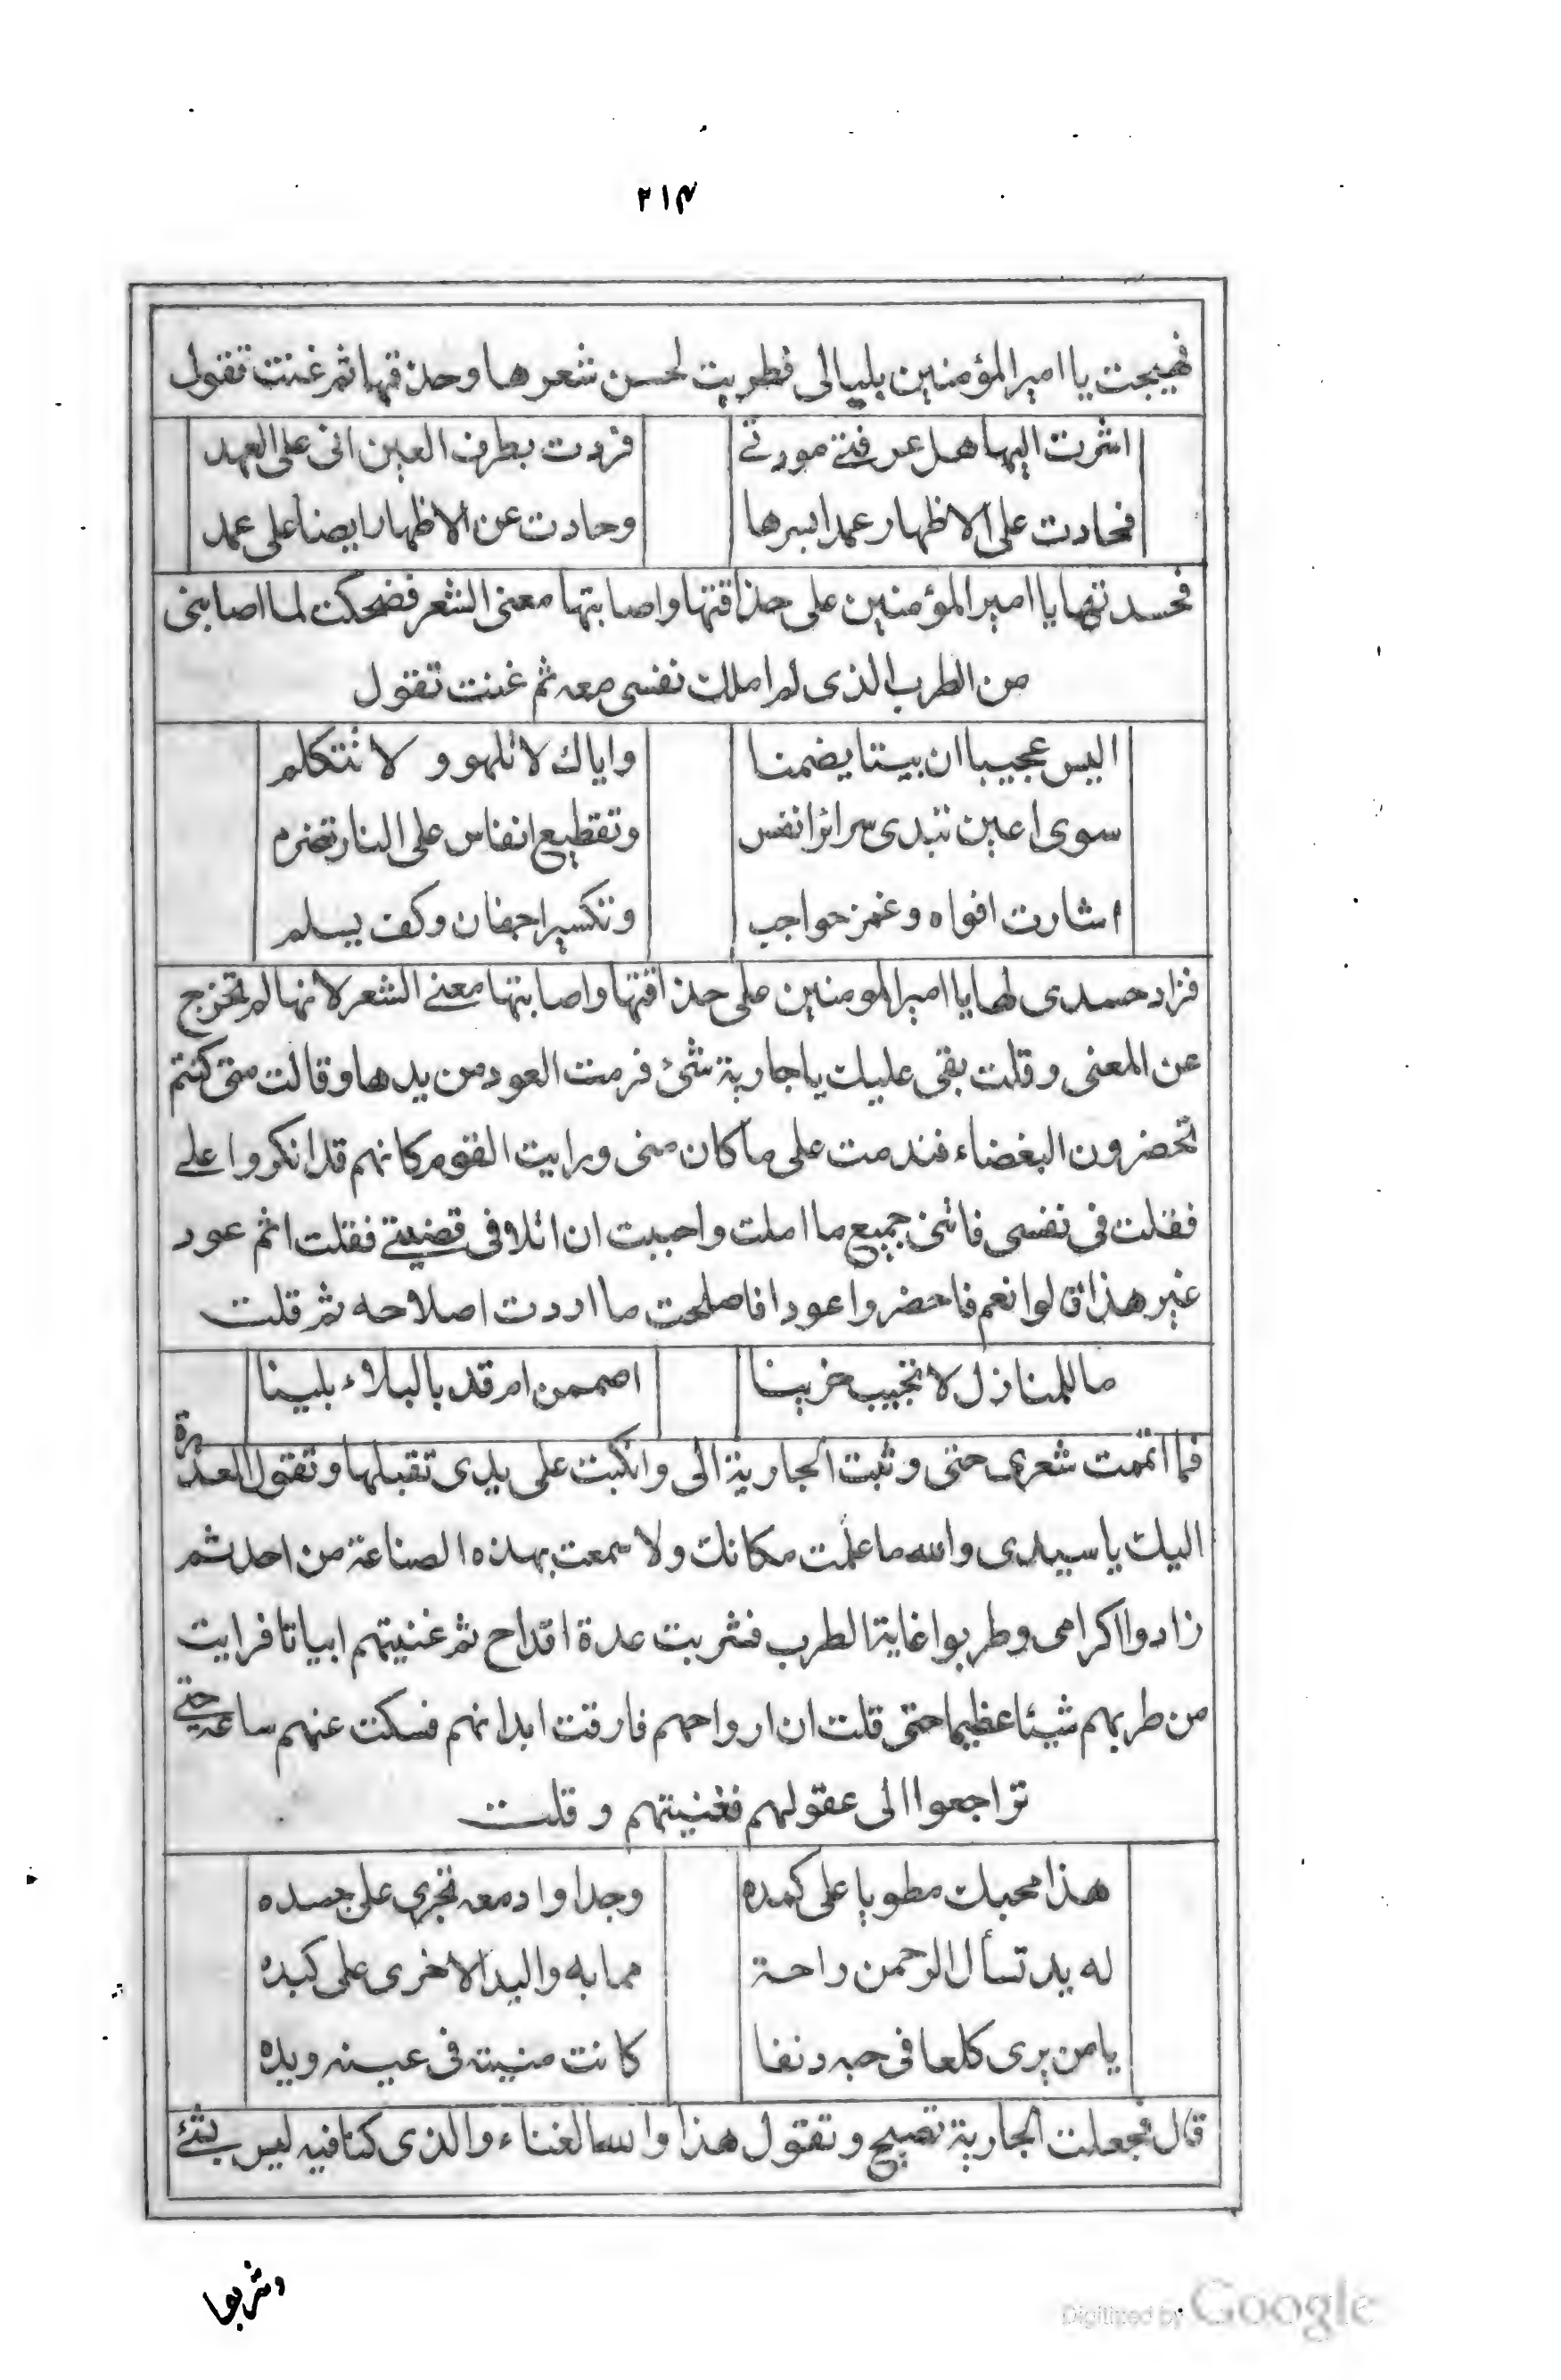 ٢١٤
فهيجت يا امير المؤمنين بلبالى فطربت لحسن شعرها وحذقها ثم غنت تقول
اشرت اليها هل عرفتى مودتى فردت بطرف العين انى على العهد
فحادت على الاظهار عمدا لسرها وحادت عن الاظهار ايضا على عمد
فحسدتها يا امير المؤمنين على حذاقتها واصابتها معنى الشعر فضحكت لما اصابنى
من الطرب الذى لم املك نفسى معه ثم غنت تقول
اليس عجيبا ان بيتا يضمنا واياك لا نلهو و لا نتكلم
سوى اعين تبدى سرائر انفس وتقطيع انفاس على النار تضرم
اشارت افواه وغمز حواجب وتكسير اجفان وكف يسلم
فزاد حسدى لها يا امير المومنين على حذاقتها واصابتها معنى الشعر لانها لم تخرج
عن المعنى وقلت بقى عليك يا جارية شئ فرمت العود من يدها وقالت متى كنتم
تحضرون البغضاء فندمت على ما كان منى ورايت القوم كانهم قد انكروا على
فقلت فى نفسى فاتنى جميع ما املت واحببت ان اتلافى قضيتى فقلت اثم عود
غير هذا قالوا نعم فاحضروا عودا فاصلحت ما اردت اصلاحه ثم قلت
ما للمنازل لا تجيب حزينا اصممن ام قد بالبلاء بلينا
فما اتممت شعرى حتى وثبت الجارية الى وانكبت على يدى تقبلها وتقول المعذرة
اليك يا سيدى والله ما علمت مكانك ولا سمعت بهذه الصناعة من احد ثم
زادوا اكرامى وطربوا غاية الطرب فشربت عدة اقداح ثم غنيتهم ابياتا فرايت
من طربهم شيئا عظيما حتى قلت ان ارواحهم فارقت ابدانهم فسكت عنهم ساعة حتى
تراجعوا الى عقولهم فغنيتهم وقلت
هذا محبك مطويا على كمده وجدا وادمعه تجرى على جسده
له يد تسأل الرحمن راحة مما به واليد الاخرى على كبده
يا من يرى كلعا فى حبه دنفا كانت منيته فى عينه ويده
قال فجعلت الجارية تصيح وتقول هذا والله الغناء والذى كنا فيه ليس بشئ
وشربوا
Digitized by Google